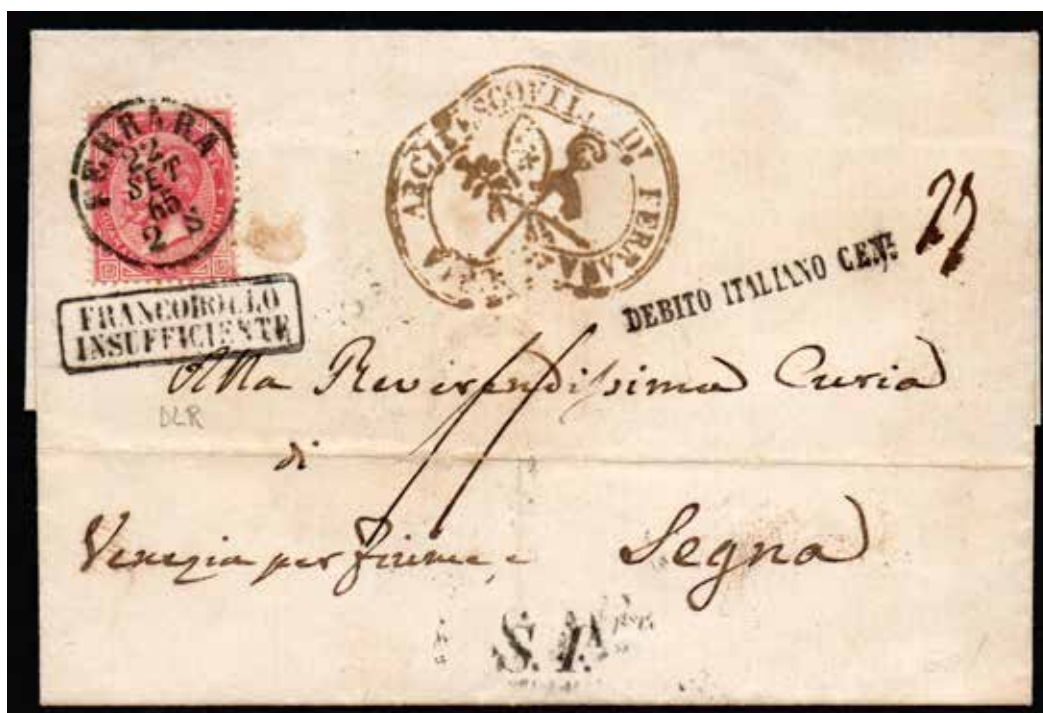 FERRARA
22
SET
65
2 S
ARCIVESCOVILE DI FERRARA
FRANCOBOLLO
INSUFFICIENTE
DEBITO ITALIANO CENT.
Alla Reverendissima Curia
DLR
di
Venezia per Fiume Segna
S.I.